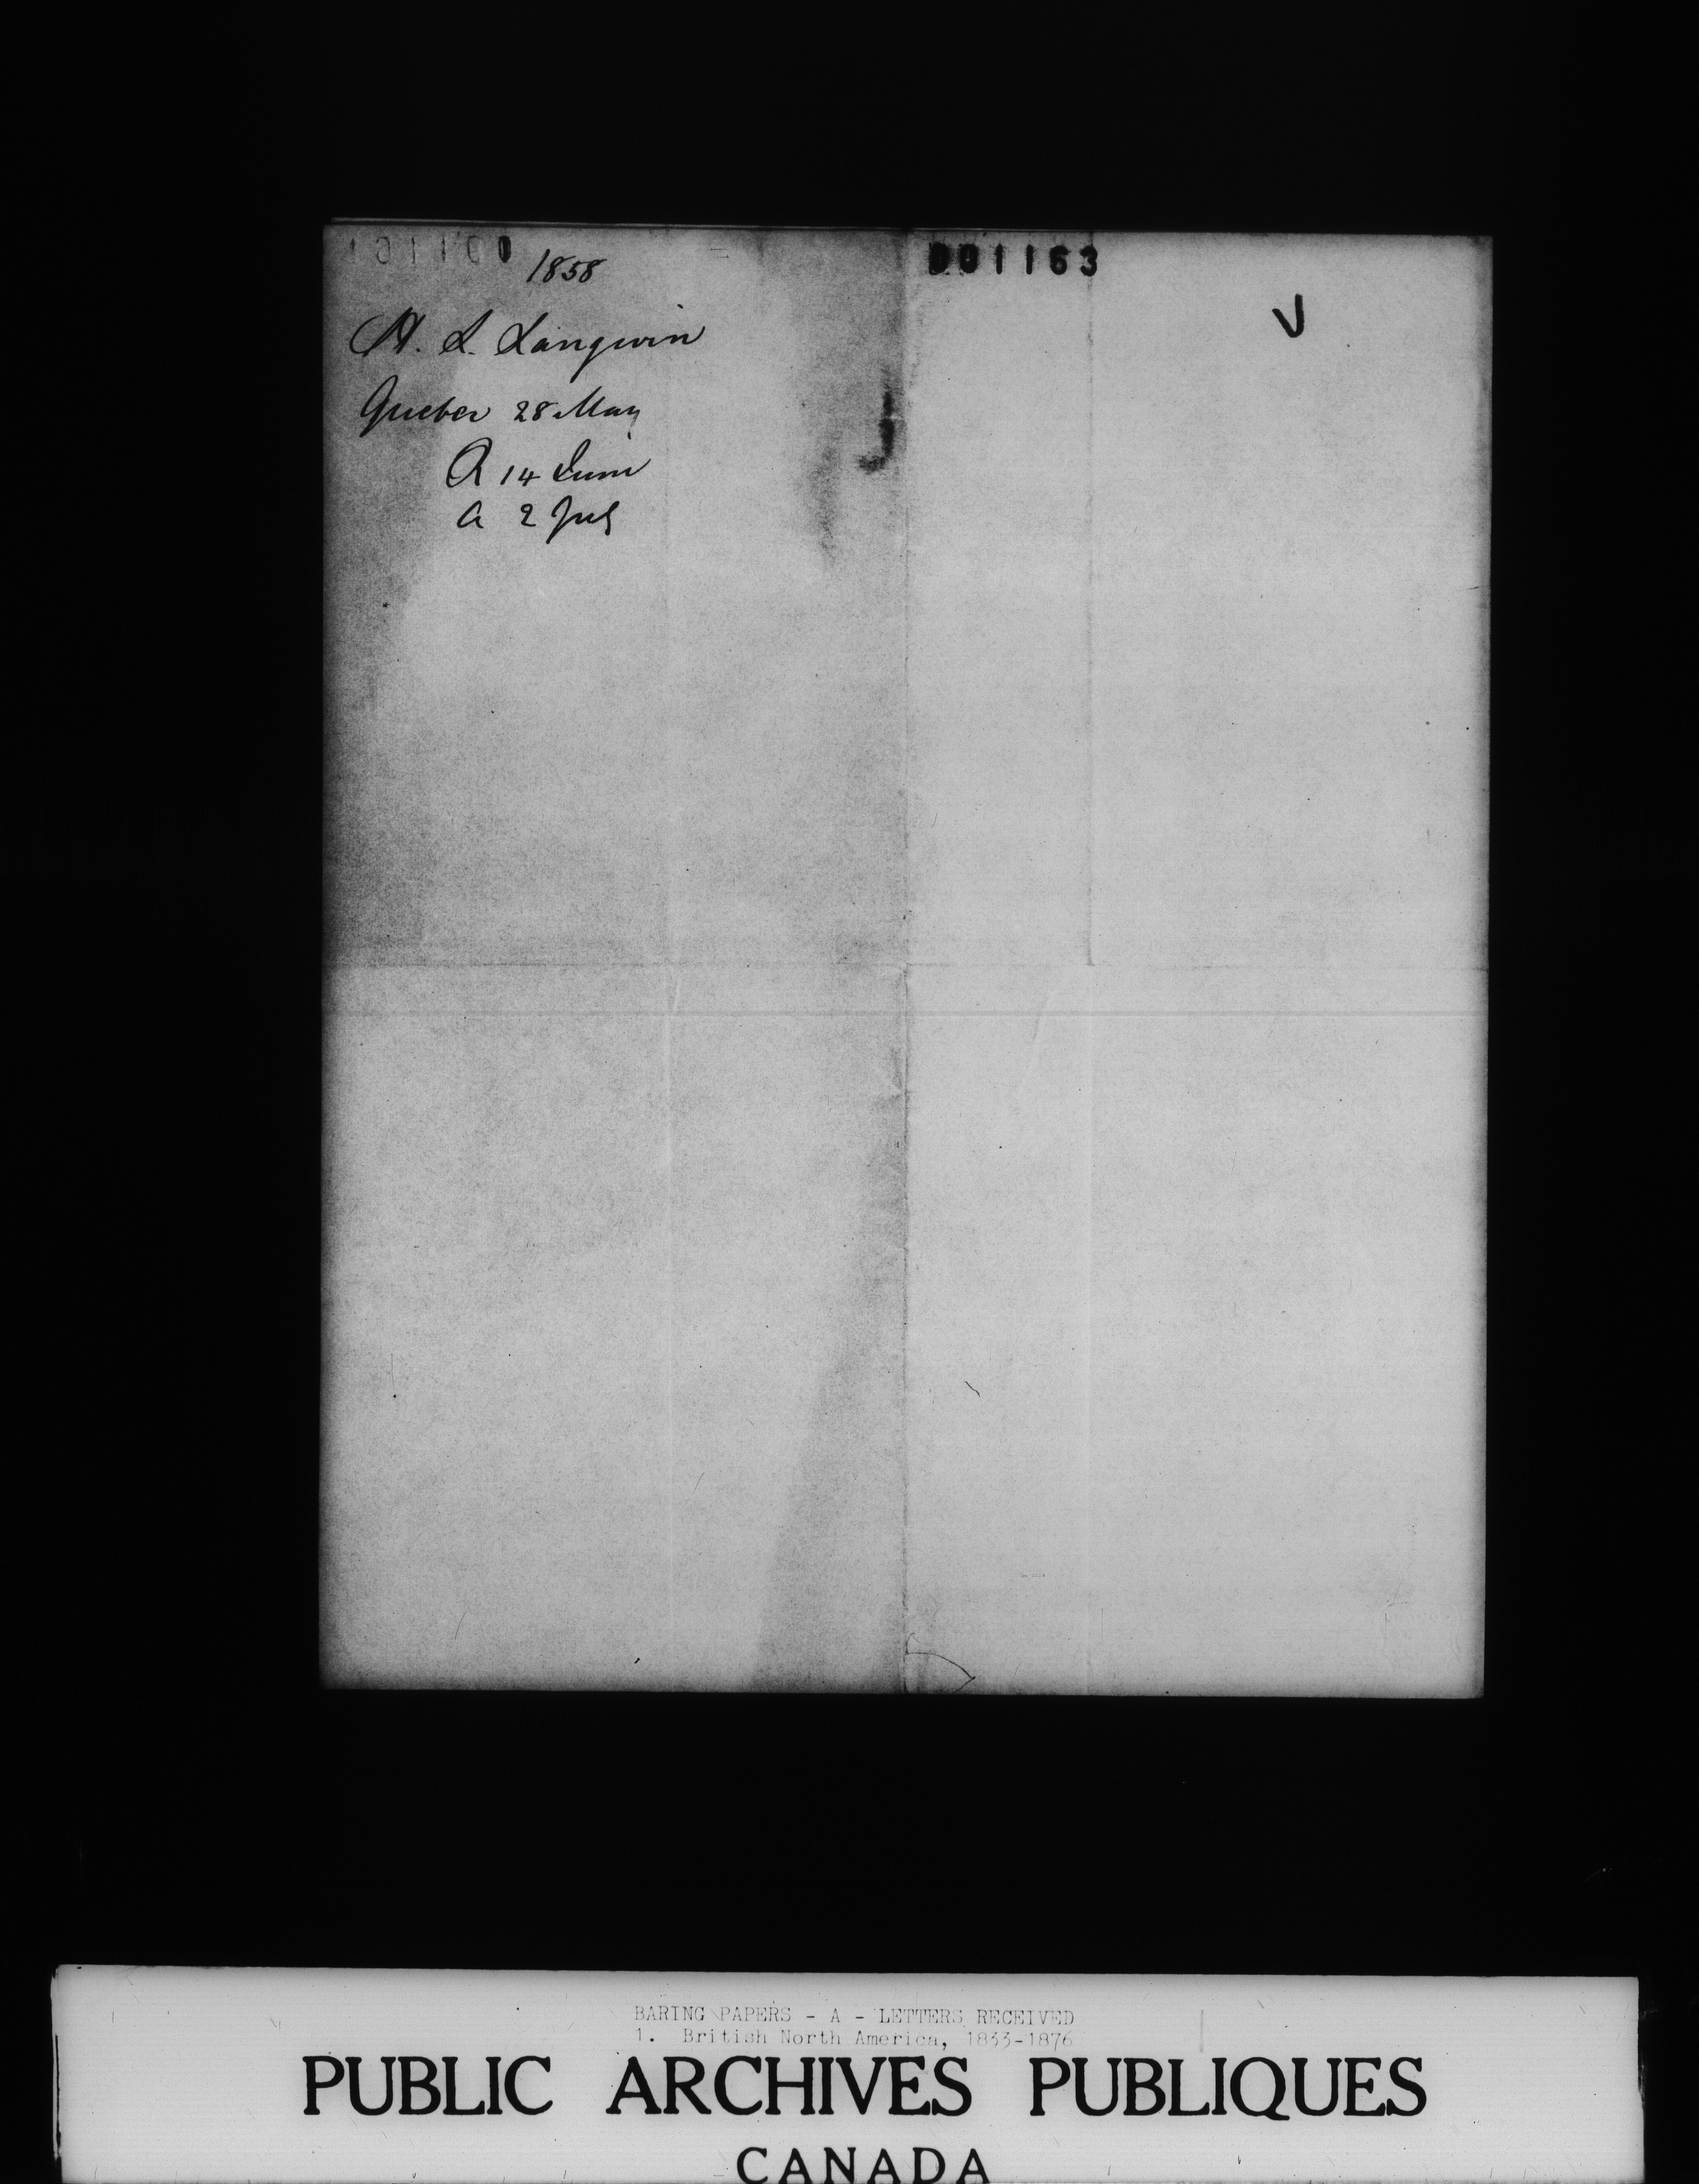 1858
H. L. Langevin
Quebec 28 May
R 14 June
A 2 July
001163
BARING PAPERS - A - LETTERS RECEIVED
1. British North America, 1833-1876
PUBLIC ARCHIVES PUBLIQUES
CANADA